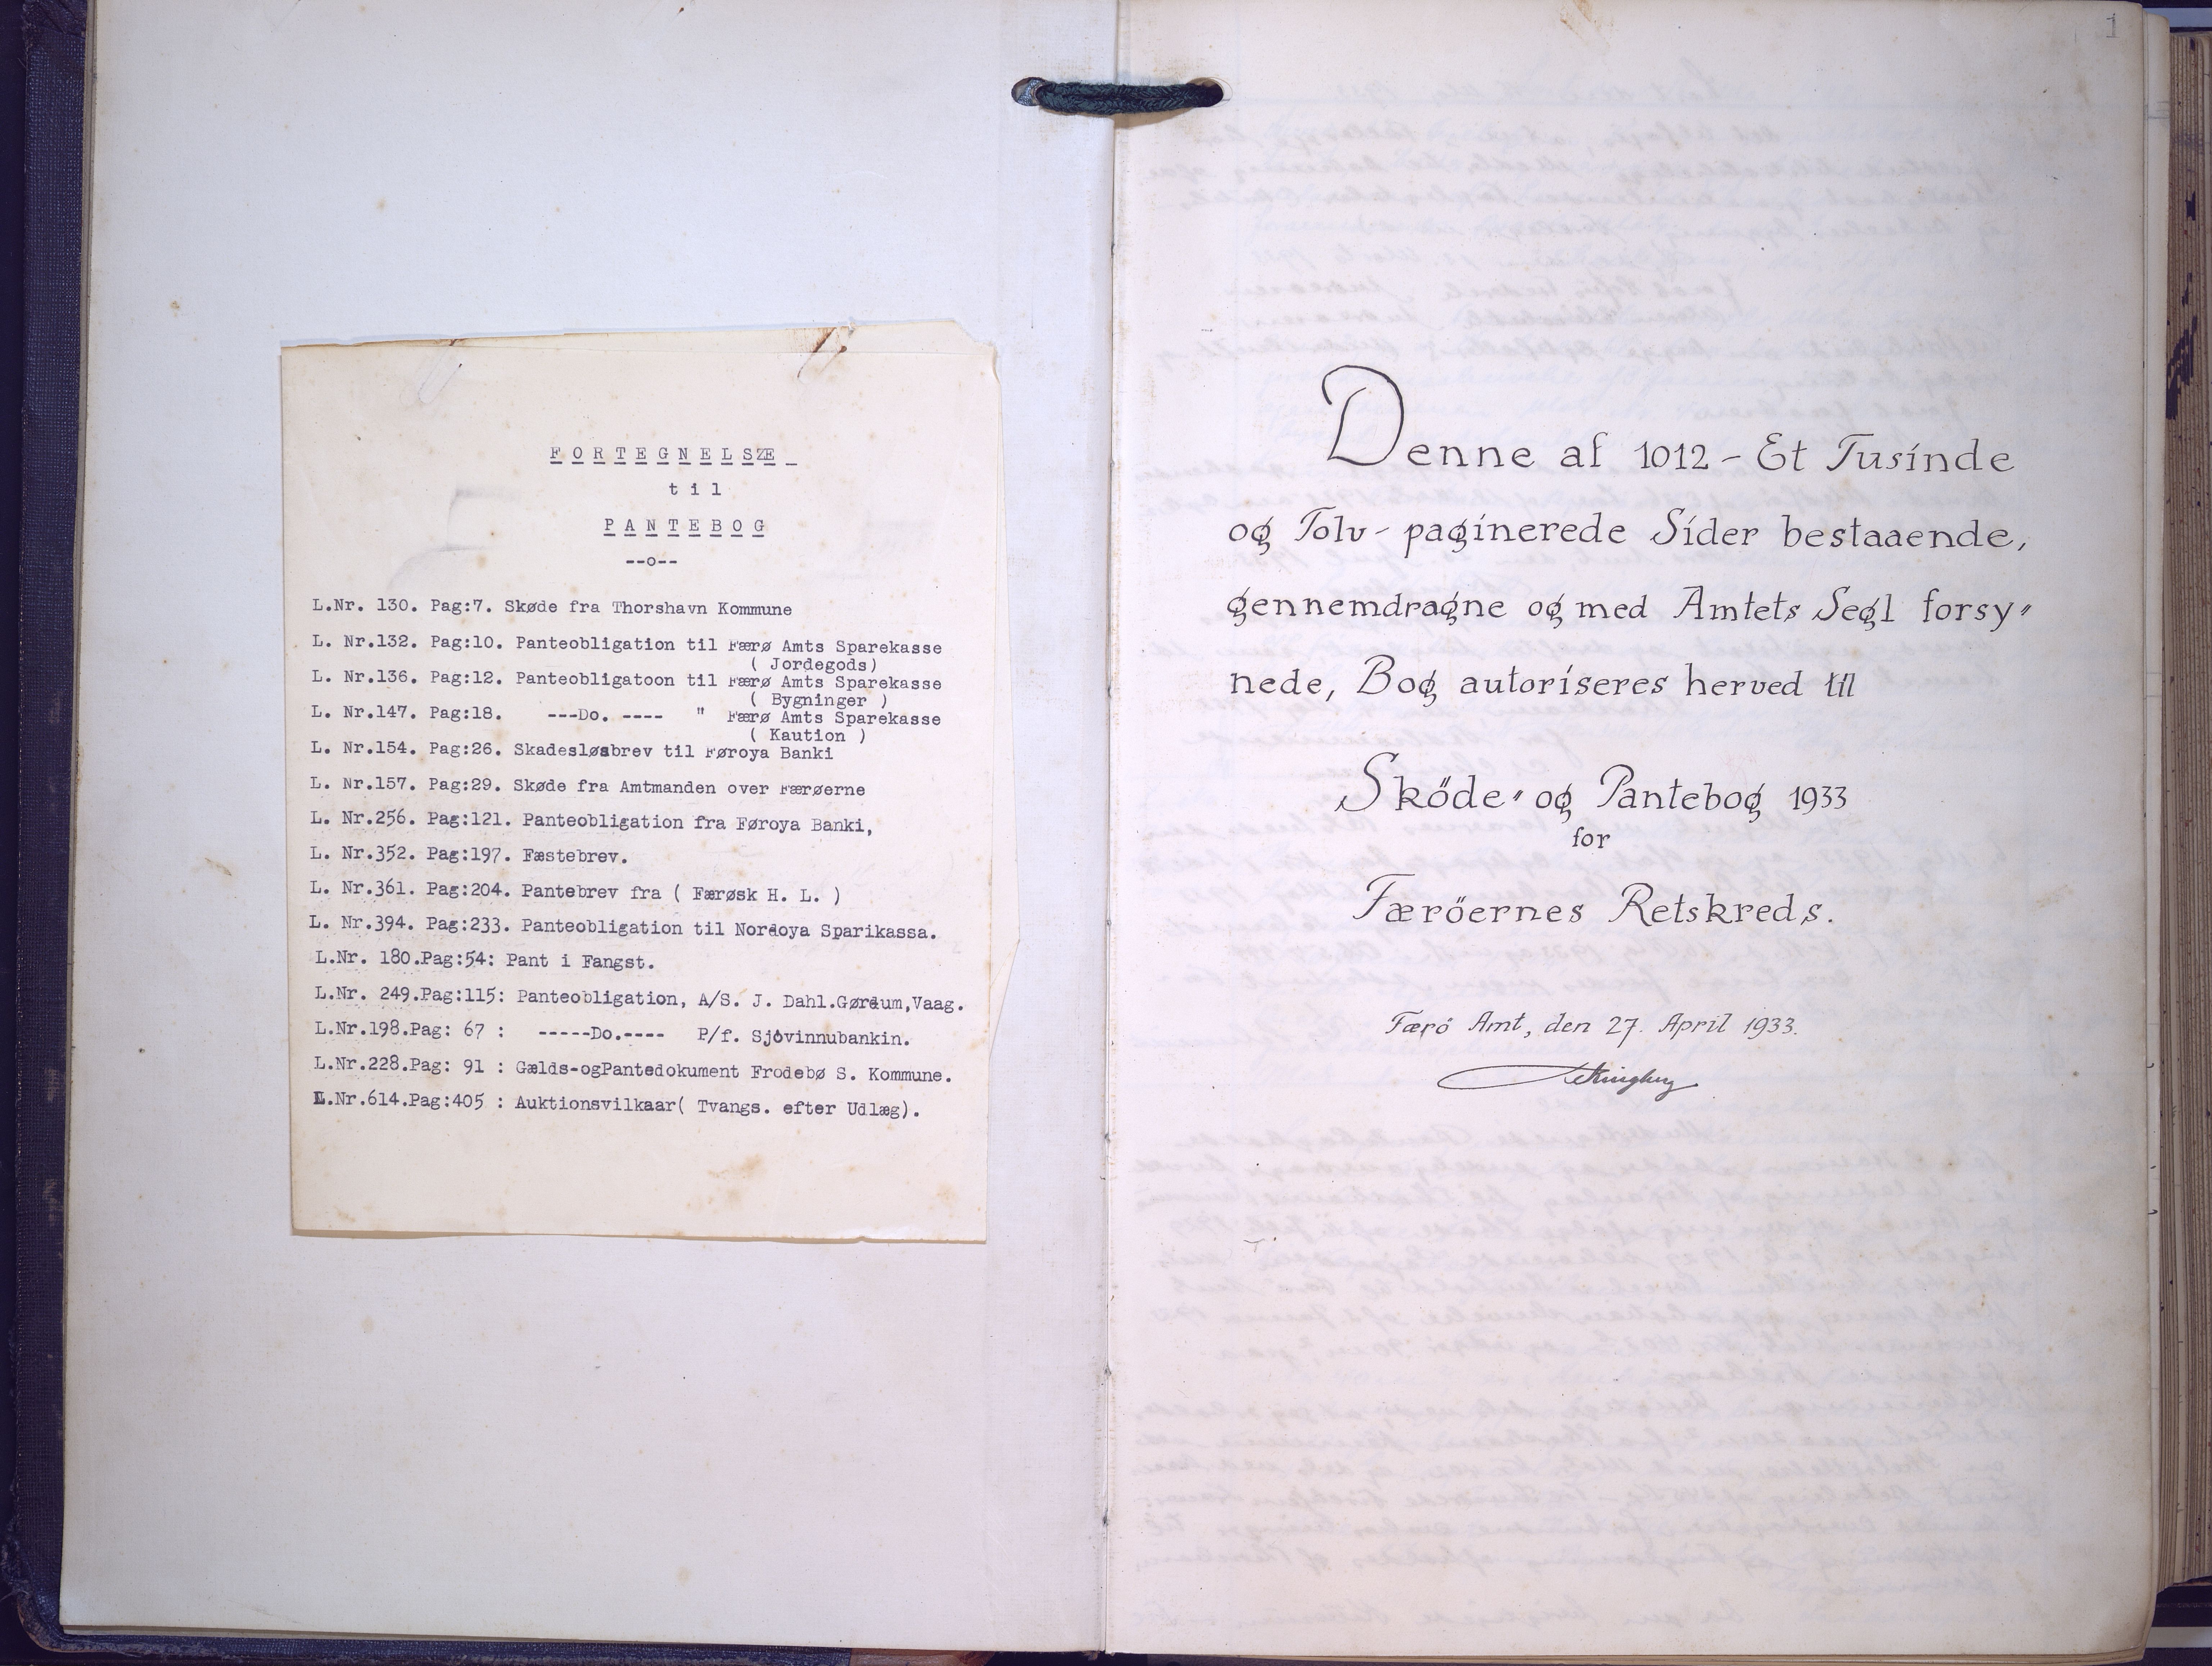 FORTEGNELSE
til
PANTEBOG
--o--
L.Nr. 130. Pag:7. Skøde fra Thorshavn Kommune
L. Nr.132. Pag:10. Panteobligation til Færø Amts Sparekasse
( Jordegods)
L. Nr.136. Pag:12. Panteobligatoon til Færø Amts Sparekasse
( Bygninger )
L. Nr.147. Pag:18. ---Do. ---- " Færø Amts Sparekasse
( Kaution )
L. Nr.154. Pag:26. Skadesløsbrev til Føroya Banki
L. Nr.157. Pag:29. Skøde fra Amtmanden over Færøerne
L. Nr.256. Pag:121. Panteobligation fra Føroya Banki,
L. Nr.352. Pag:197. Fæstebrev.
L. Nr.361. Pag:204. Pantebrev fra ( Færøsk H. L. )
L. Nr.394. Pag:233. Panteobligation til Nordoya Sparikassa.
L.Nr. 180.Pag:54: Pant i Fangst.
L.Nr. 249.Pag:115: Panteobligation, A/S. J. Dahl.Gørdum,Vaag.
L.Nr.198.Pag: 67 : -----Do.---- P/f. Sjóvinnubankin.
L.Nr.228.Pag: 91 : Gælds-ogPantedokument Frodebø S. Kommune.
L.Nr.614.Pag:405 : Auktionsvilkaar( Tvangs. efter Udlæg).
1
Denne af 1012 - Et Tusinde
og Tolv - paginerede Sider bestaaende,
gennemdragne og med Amtets Segl forsy"
nede, Bog autoriseres herved til
Sköde" og Pantebog 1933
for
Færöernes Retskreds.
Færö Amt, den 27. April 1933.